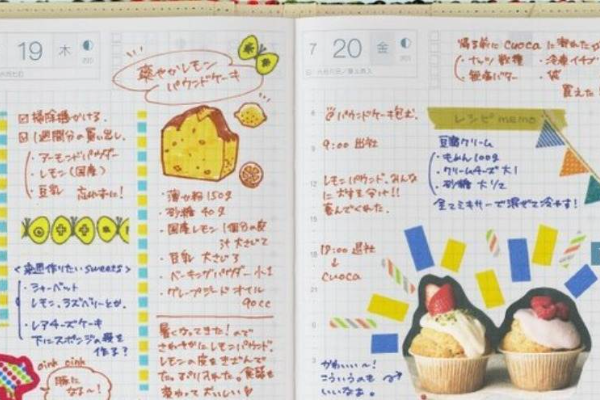 19 木
爽やかレモン
パウンドケーキ
掃除機かける。
1週間分の買い出し。
・アーモンドパウダー
・レモン(国産)
・豆乳 忘れずに!
・薄力粉 150g
・砂糖 40g
・国産レモン 1個分の皮
汁 大さじ2
・豆乳 大さじ3
・ベーキングパウダー 小1
・グレープシードオイル
90cc
<来週作りたいsweets>
・シャーベット
レモン、ラズベリーとか。
・レアチーズケーキ
下にスポンジの段を
作る?
暑くなってきた!ので
さわやかにレモンケーキ。
レモンの皮をきざんで
oink oink
豚に
なる〜!
7 20 金
パウンドケーキ包む。
9:00 出社
レモンパウンド、みんな
におすそ分け!!
喜んでくれた。
18:00 退社
↓
cuoca
帰る前にcuocaに寄れた
・ナッツ数種
・冷凍イチゴ
・無塩バター
・袋
買えた!
レシピmemo
豆腐クリーム
・もめん100g
・クリームチーズ 大1
・砂糖 大1/2
全てミキサーで混ぜて冷やす!
かわいい〜!
こういうのも
いいなぁ。